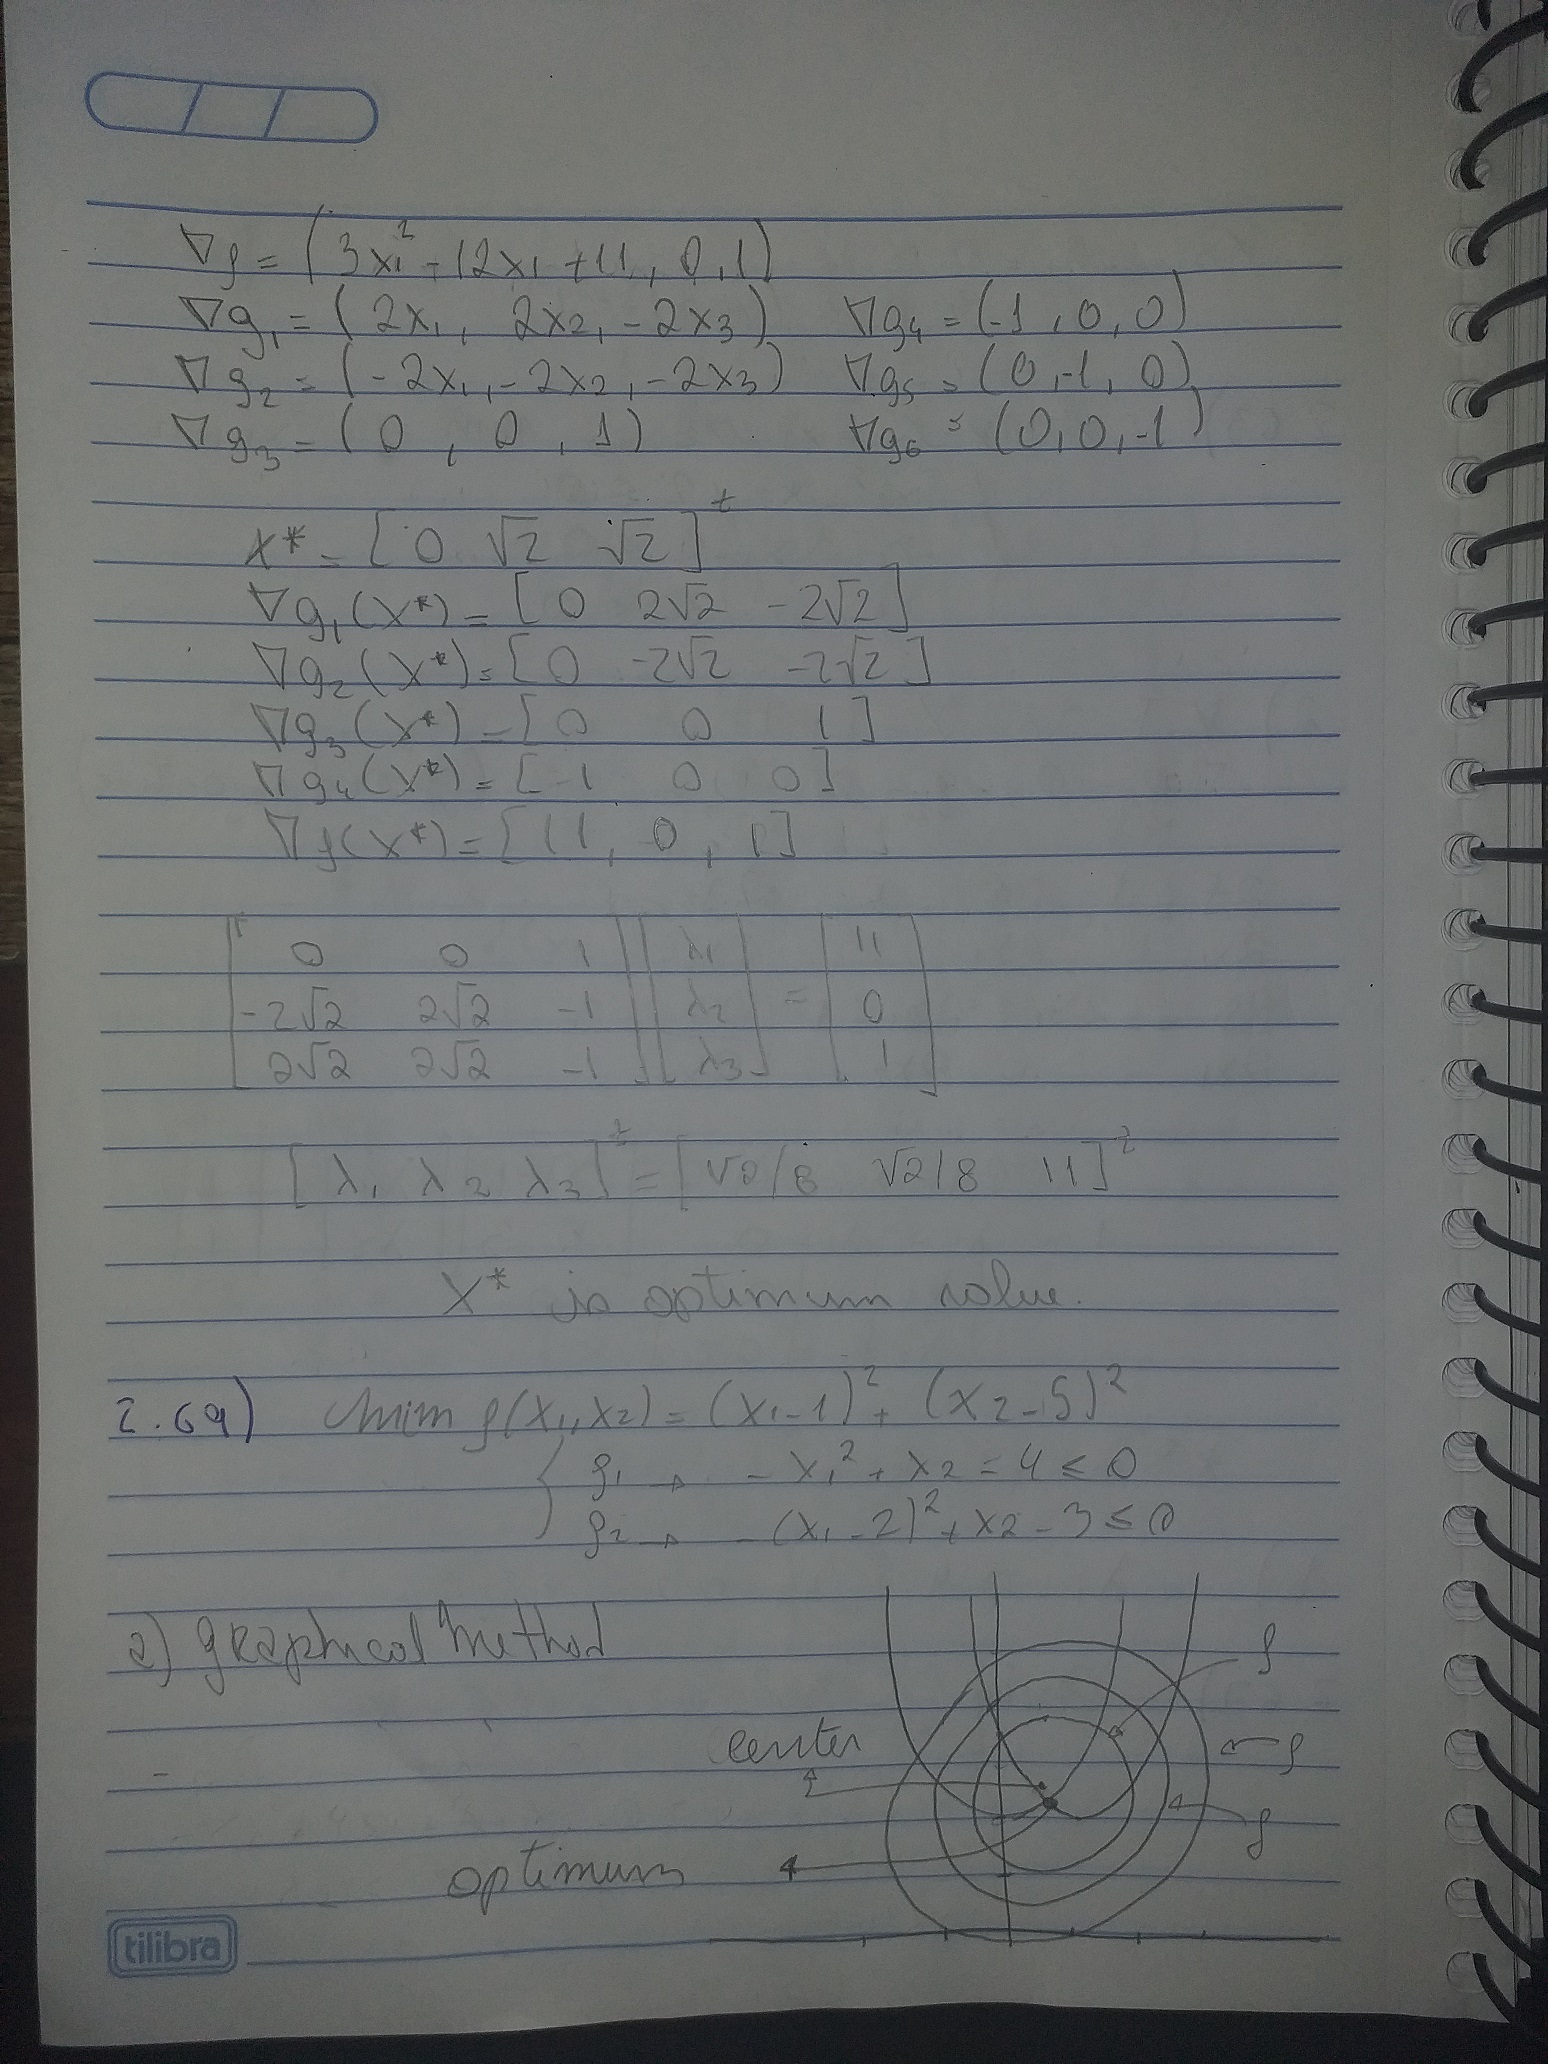 ∇f = (3x₁² - 12x₁ + 11, 0, 1)
∇g₁ = (2x₁, 2x₂, -2x₃) ∇g₄ = (-1, 0, 0)
∇g₂ = (-2x₁, -2x₂, -2x₃) ∇g₅ = (0, -1, 0)
∇g₃ = (0, 0, 1) ∇g₆ = (0, 0, -1)
x* = [0 √2 √2]ᵗ
∇g₁(x*) = [0 2√2 -2√2]
∇g₂(x*) = [0 -2√2 -2√2]
∇g₃(x*) = [0 0 1]
∇g₄(x*) = [-1 0 0]
∇f(x*) = [11, 0, 1]
[0 0 1] [λ₁] [11]
[-2√2 2√2 -1] [λ₂] = [0]
[2√2 2√2 -1] [λ₃] [1]
[λ₁ λ₂ λ₃]ᵗ = [√2/8 √2/8 11]ᵗ
X* is optimum value.
2.69) min f(x₁,x₂) = (x₁-1)² + (x₂-5)²
g₁ → -x₁² + x₂ = 4 ≤ 0
g₂ → -(x₁-2)² + x₂ - 3 ≤ 0
a) graphical method
f
center
f
f
optimum
tilibra